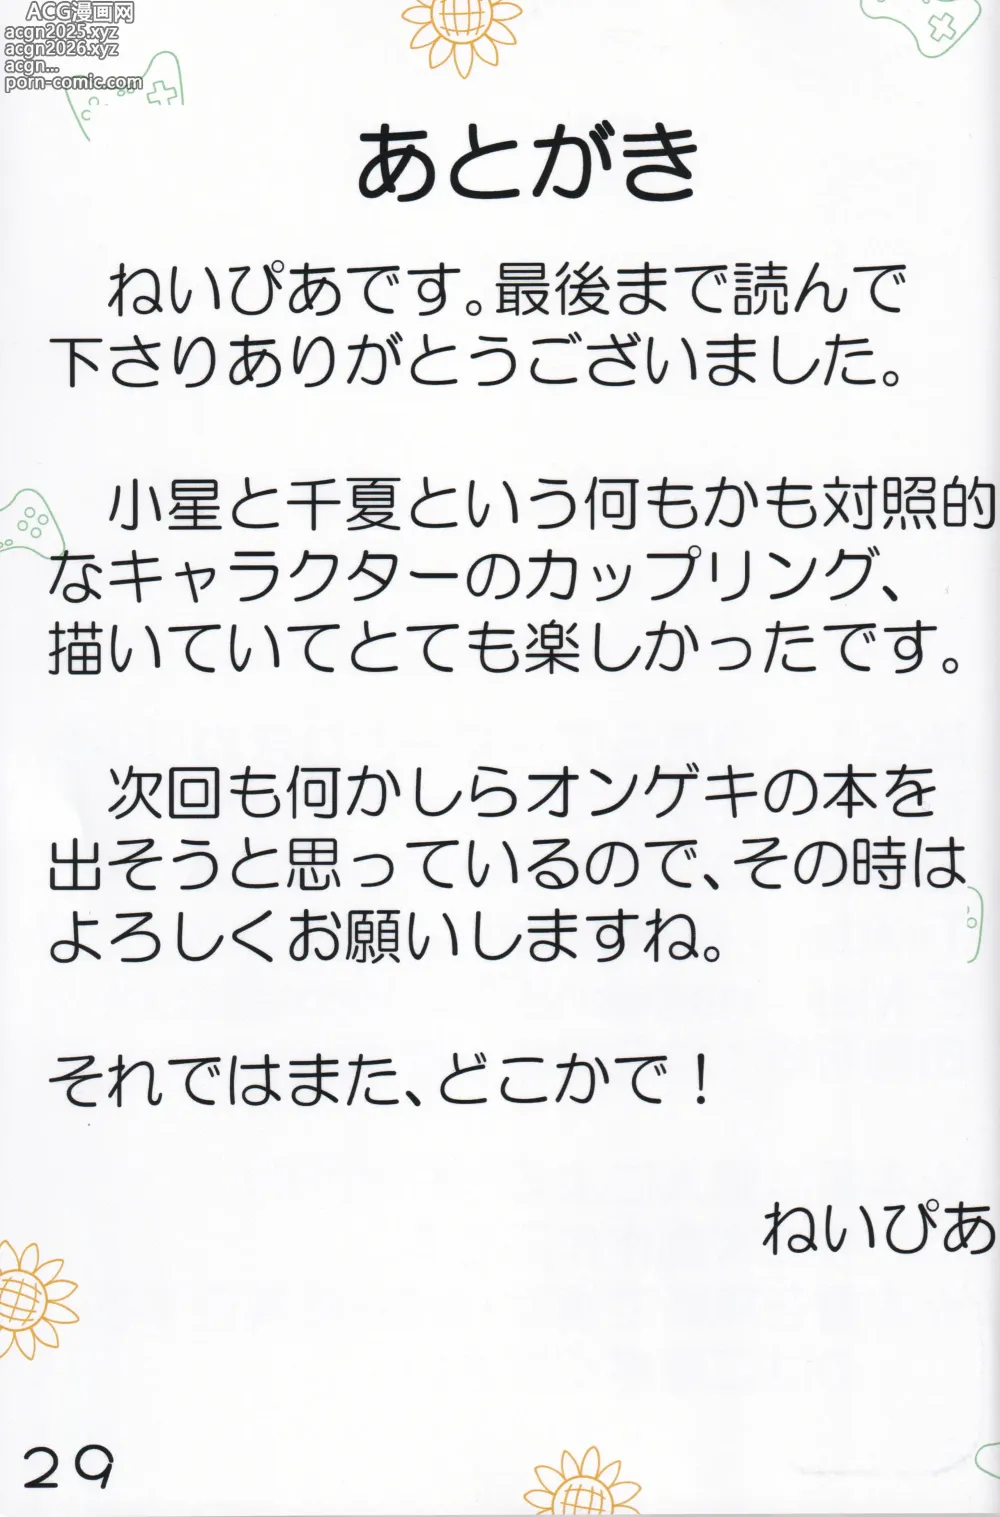 ACG漫画网
acgn2025.xyz
acgn2026.xyz
acgn...
porn-comic.com
あとがき
ねいぴあです。最後まで読んで
下さりありがとうございました。
小星と千夏という何もかも対照的
なキャラクターのカップリング、
描いていてとても楽しかったです。
次回も何かしらオンゲキの本を
出そうと思っているので、その時は
よろしくお願いしますね。
それではまた、どこかで！
ねいぴあ
29